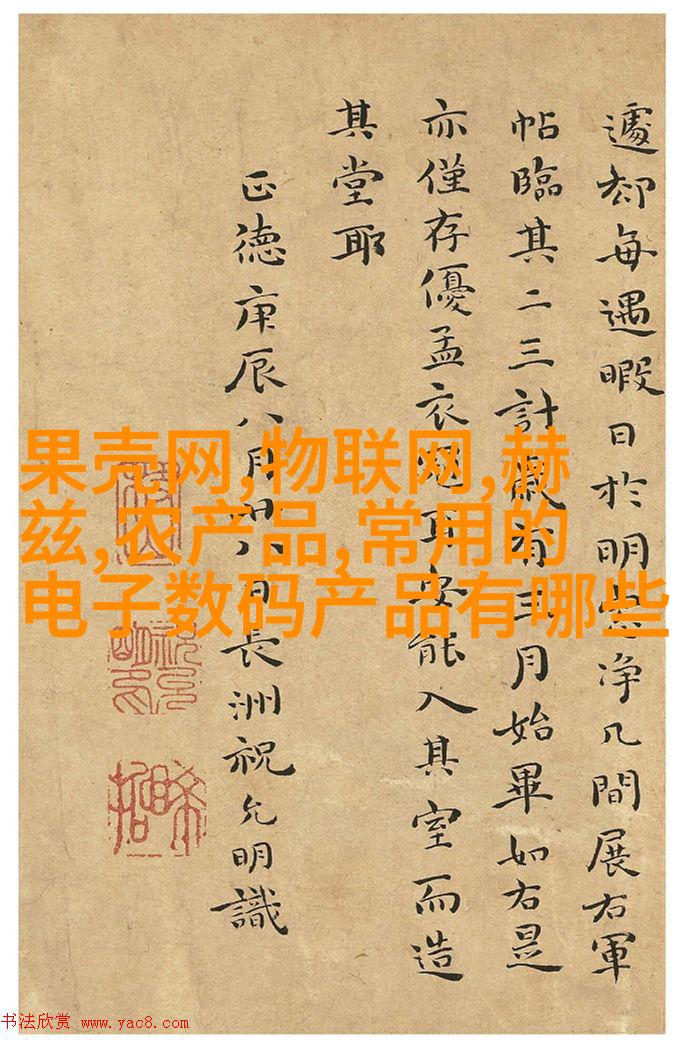 遽却每遇暇日於明窓净几間展右軍
帖臨其二三計歲有三月始畢如右是
亦僅存優孟衣冠耳安能入其室而造
其堂耶
正德庚辰八月廿八日長洲祝允明識
果壳网,物联网,赫
兹,农产品,常用的
电子数码产品有哪些
书法欣赏 www.yac8.com